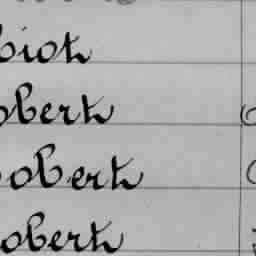 biot
obert
obert
obert